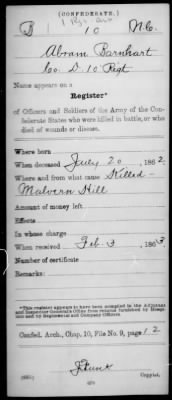 (CONFEDERATE.)
B 10 N.C.
Abram Barnhart
Co. D. 10 Regt
Name appears on a
Register*
of Officers and Soldiers of the Army of the Con-
federate States who were killed in battle, or who
died of wounds or disease.
Where born
When deceased July 20, 1862.
Where and from what cause Killed -
Malvern Hill
Amount of money left
Effects
In whose charge
When received Feb. 3, 1863
Number of certificate
Remarks:
*This register appears to have been compiled in the Adjutant
and Inspector General's Office from returns furnished by Hospi-
tals and by Regimental and Company Officers.
Confed. Arch., Chap. 10, File No. 9, page 12
Copyist.